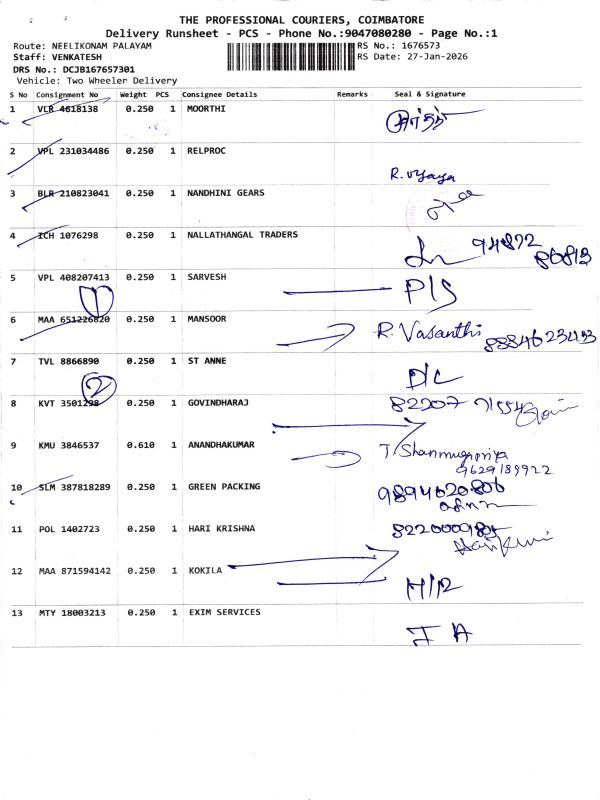 THE PROFESSIONAL COURIERS, COIMBATORE
Delivery Runsheet - PCS - Phone No.:9047080280 - Page No.:1
Route: NEELIKONAM PALAYAM
RS No.: 1676573
Staff: VENKATESH
RS Date: 27-Jan-2026
DRS No.: DCJB167657301
Vehicle: Two Wheeler Delivery
S No Consignment No Weight PCS Consignee Details Remarks Seal & Signature
1 VLR 4618138 0.250 1 MOORTHI
2 VPL 231034486 0.250 1 RELPROC
R. Vijaya
3 BLR 210823041 0.250 1 NANDHINI GEARS
4 ICH 1076298 0.250 1 NALLATHANGAL TRADERS
94872
86813
5 VPL 408207413 0.250 1 SARVESH
P/S
1
6 MAA 651226820 0.250 1 MANSOOR
R. Vasanthi
7 TVL 8866890 0.250 1 ST ANNE
D/C
2
8 KVT 3501298 0.250 1 GOVINDHARAJ
82207 91554
9 KMU 3846537 0.610 1 ANANDHAKUMAR
T. Shanmugapriya
9629189922
10 SLM 387818289 0.250 1 GREEN PACKING
9894620806
11 POL 1402723 0.250 1 HARI KRISHNA
12 MAA 871594142 0.250 1 KOKILA
H/R
13 MTY 18003213 0.250 1 EXIM SERVICES
I A